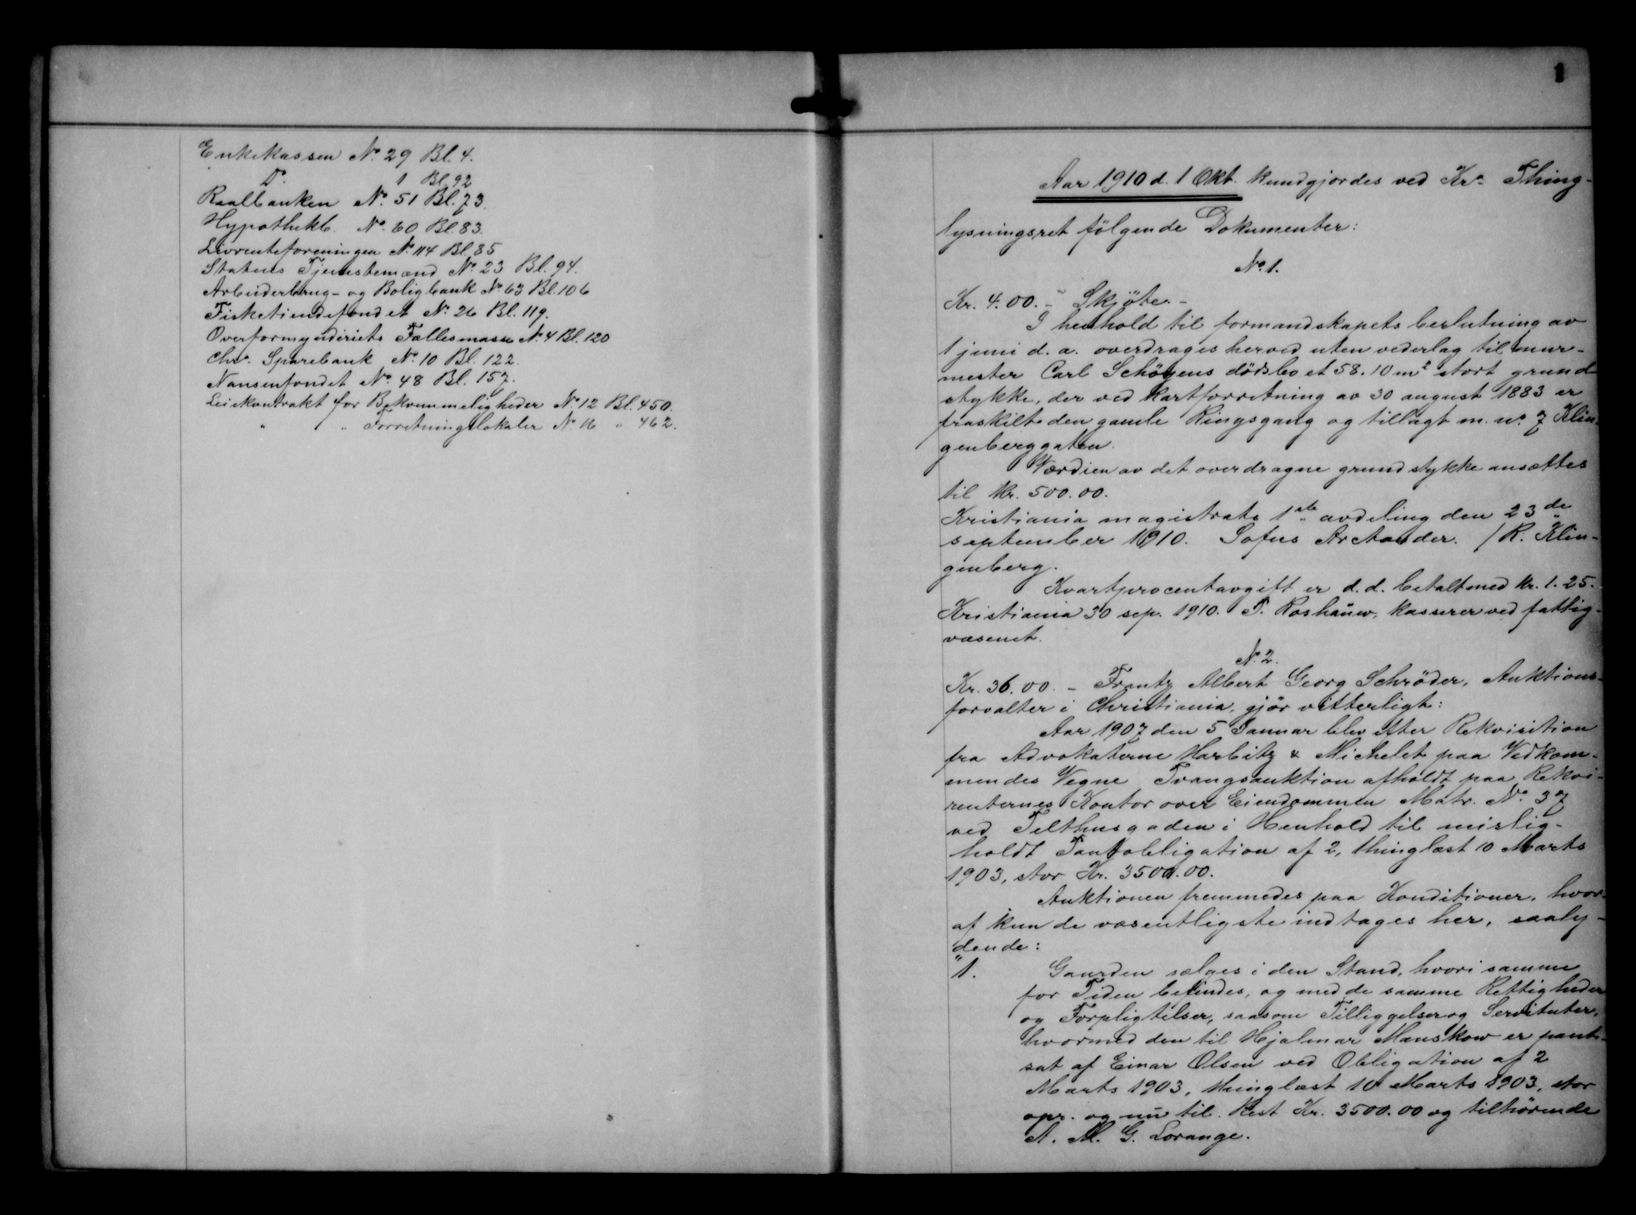 Enkekassen No. 29 Bl. 4.
Do. 1 Bl. 92
Realbanken No. 51 Bl. 73.
Hypothekb. No. 60 Bl. 83.
Livrenteforeningen No. 114 Bl. 85
Statens Tjenestemænd No. 23 Bl. 94.
Arbeiderbrug- og Boligbank No. 63 Bl. 106
Fisketiendefondet No. 26 Bl. 119.
Overformynderiets Fallesmasse No. 4 Bl. 120
Chr. Sparebank No. 10 Bl. 122.
Nansenfondet No. 48 Bl. 157.
Leiekontrakt for Bekvemmeligheder No. 12 Bl. 450.
" " Forretningslokaler No. 16 " 462.
1
Aar 1910 d. 1 Okt. kundgjordes ved Kra Thing-
lysningsret følgende Dokumenter:
No. 1.
Kr. 4.00. - Skjöte. -
I henhold til formandskapets beslutning av
1 juni d. a. overdrages herved uten vederlag til mur-
mester Carl Schöyens dödsbo et 58.10 m² stort grund-
stykke, der ved kartforretning av 30 august 1883 er
fraskilt den gamle Ringsgang og tillagt m. no. 7 Klin-
genberggaten.
Værdien av det overdragne grundstykke ansættes
til kr. 500.00.
Kristiania magistrats 1ste avdeling den 23de
september 1910. Sofus Arctander. / R. Klin-
genberg.
Kvartprocentavgift er d. d. betalt med kr. 1.25.
Kristiania 30 sep. 1910. T. Roshauw, kasserer ved fattig-
væsenet.
No. 2.
Kr. 36.00. - Frantz Albert Georg Schröder, Auktions-
forvalter i Christiania, gjör vitterligt:
Aar 1907 den 5 Januar blev efter Rekvisition
fra Advokaterne Harbitz & Michelet paa Vedkom-
mendes Vegne Tvangsauktion afholdt paa Rekvi-
renternes Kontor over Eiendommen Matr. No. 37
ved Telthusgaden i Henhold til mislig-
holdt Pantobligation af 2, thinglæst 10 Marts
1903, stor Kr. 3500.00.
Auktionen fremmedes paa Konditioner, hvor-
af kun de væsentligste indtages her, saaly-
dende:
"1. Gaarden sælges i den Stand, hvori samme
for Tiden befindes, og med de samme Rettigheder
og Forpligtelser, saasom Tilliggelser og Servituter,
hvormed den til Hjalmar Manskow er pant-
sat af Einar Olsen ved Obligation af 2
Marts 1903, thinglæst 10 Marts 1903, stor
opr. og nu til Rest Kr. 3500.00 og tilhørende
A. M. G. Lorange.